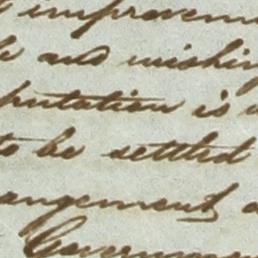 improvem
and wishin
putation is
to be settled
angement
Governmen